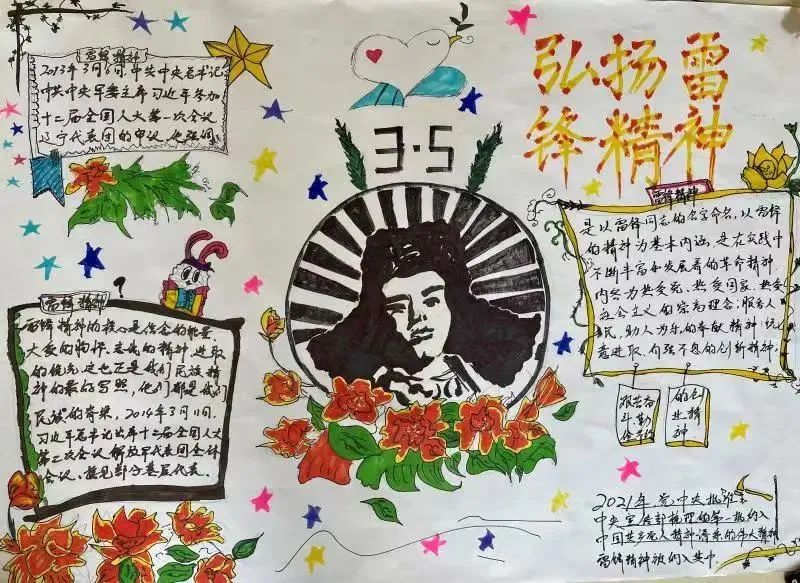 弘扬雷
锋精神
3·5
雷锋精神
2013年3月6日,中共中央总书记
中共中央军委主席习近平参加
十二届全国人大第一次会议
辽宁代表团的审议,他强调:
雷锋精神
雷锋精神的核心是信念的能量,
大爱的胸怀,忘我的精神,进取
的锐气,这也正是我们民族精
神的最好写照,他们都是我们
民族的脊梁,2014年3月11日,
习近平总书记出席十二届全国人大
第二次会议解放军代表团全体
会议,接见部分基层代表.
雷锋精神
是以雷锋同志的名字命名,以雷锋
的精神为基本内涵,是在实践中
不断丰富和发展着的革命精神
内容为热爱党、热爱国家、热爱
社会主义的崇高理念;服务人
民,助人为乐的奉献精神;锐
意进取、自强不息的创新精神.
艰苦奋
斗,勤
俭节约
的创
业精
神
2021年,党中央批准了
中央宣传部梳理的第一批纳入
中国共产党人精神谱系的伟大精神
雷锋精神被纳入其中.